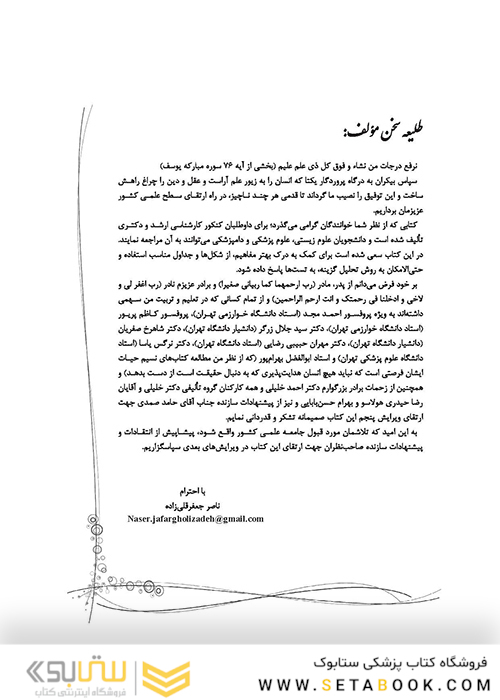 طلیعه سخن مؤلف:
نرفع درجات من نشاء و فوق کل ذی علم علیم (بخشی از آیه ۷۶ سوره مبارکه یوسف)
سپاس بیکران به درگاه پروردگار یکتا که انسان را به زیور علم آراست و عقل و دین را چراغ راهش
ساخت و این توفیق را نصیب ما گرداند تا قدمی هر چند ناچیز، در راه ارتقای سطح علمی کشور
عزیزمان برداریم.
کتابی که از نظر شما خوانندگان گرامی می‌گذرد؛ برای داوطلبان کنکور کارشناسی ارشد و دکتری
تألیف شده است و دانشجویان علوم زیستی، علوم پزشکی و دامپزشکی می‌توانند به آن مراجعه نمایند.
در این کتاب سعی شده است برای کمک به درک بهتر مفاهیم، از شکل‌ها و جداول مناسب استفاده و
حتی‌الامکان به روش تحلیل گزینه، به تست‌ها پاسخ داده شود.
بر خود فرض می‌دانم از پدر، مادر (رب ارحمهما کما ربیانی صغیرا) و برادر عزیزم نادر (رب اغفر لی و
لاخی و ادخلنا فی رحمتک و انت ارحم الراحمین) و از تمام کسانی که در تعلیم و تربیت من سهمی
داشته‌اند به ویژه پروفسور احمد مجد (استاد دانشگاه خوارزمی تهران)، پروفسور کاظم پریور
(استاد دانشگاه خوارزمی تهران)، دکتر سید جلال زرگر (دانشیار دانشگاه تهران)، دکتر شاهرخ صفریان
(دانشیار دانشگاه تهران)، دکتر مهران حبیبی رضایی (استاد دانشگاه تهران)، دکتر نرگس پاسا (استاد
دانشگاه علوم پزشکی تهران) و استاد ابوالفضل بهرام‌پور (که از نظر من مطالعه کتاب‌های نسیم حیات
ایشان فرصتی است که نباید هیچ انسان هدایت‌پذیری که به دنبال حقیقت است از دست بدهد) و
همچنین از زحمات برادر بزرگوارم دکتر احمد خلیلی و همه کارکنان گروه تألیفی دکتر خلیلی و آقایان
رضا حیدری هولاسو و بهرام حسن‌بابایی و نیز از پیشنهادات سازنده جناب آقای حامد صمدی جهت
ارتقای ویرایش پنجم این کتاب صمیمانه تشکر و قدردانی نمایم.
به این امید که تلاشمان مورد قبول جامعه علمی کشور واقع شود، پیشاپیش از انتقادات و
پیشنهادات سازنده صاحب‌نظران جهت ارتقای این کتاب در ویرایش‌های بعدی سپاسگزاریم.
با احترام
ناصر جعفرقلی‌زاده
Naser.jafargholizadeh@gmail.com
فروشگاه کتاب پزشکی ستابوک
WWW.SETABOOK.COM
ستابوک
فروشگاه اینترنتی کتاب